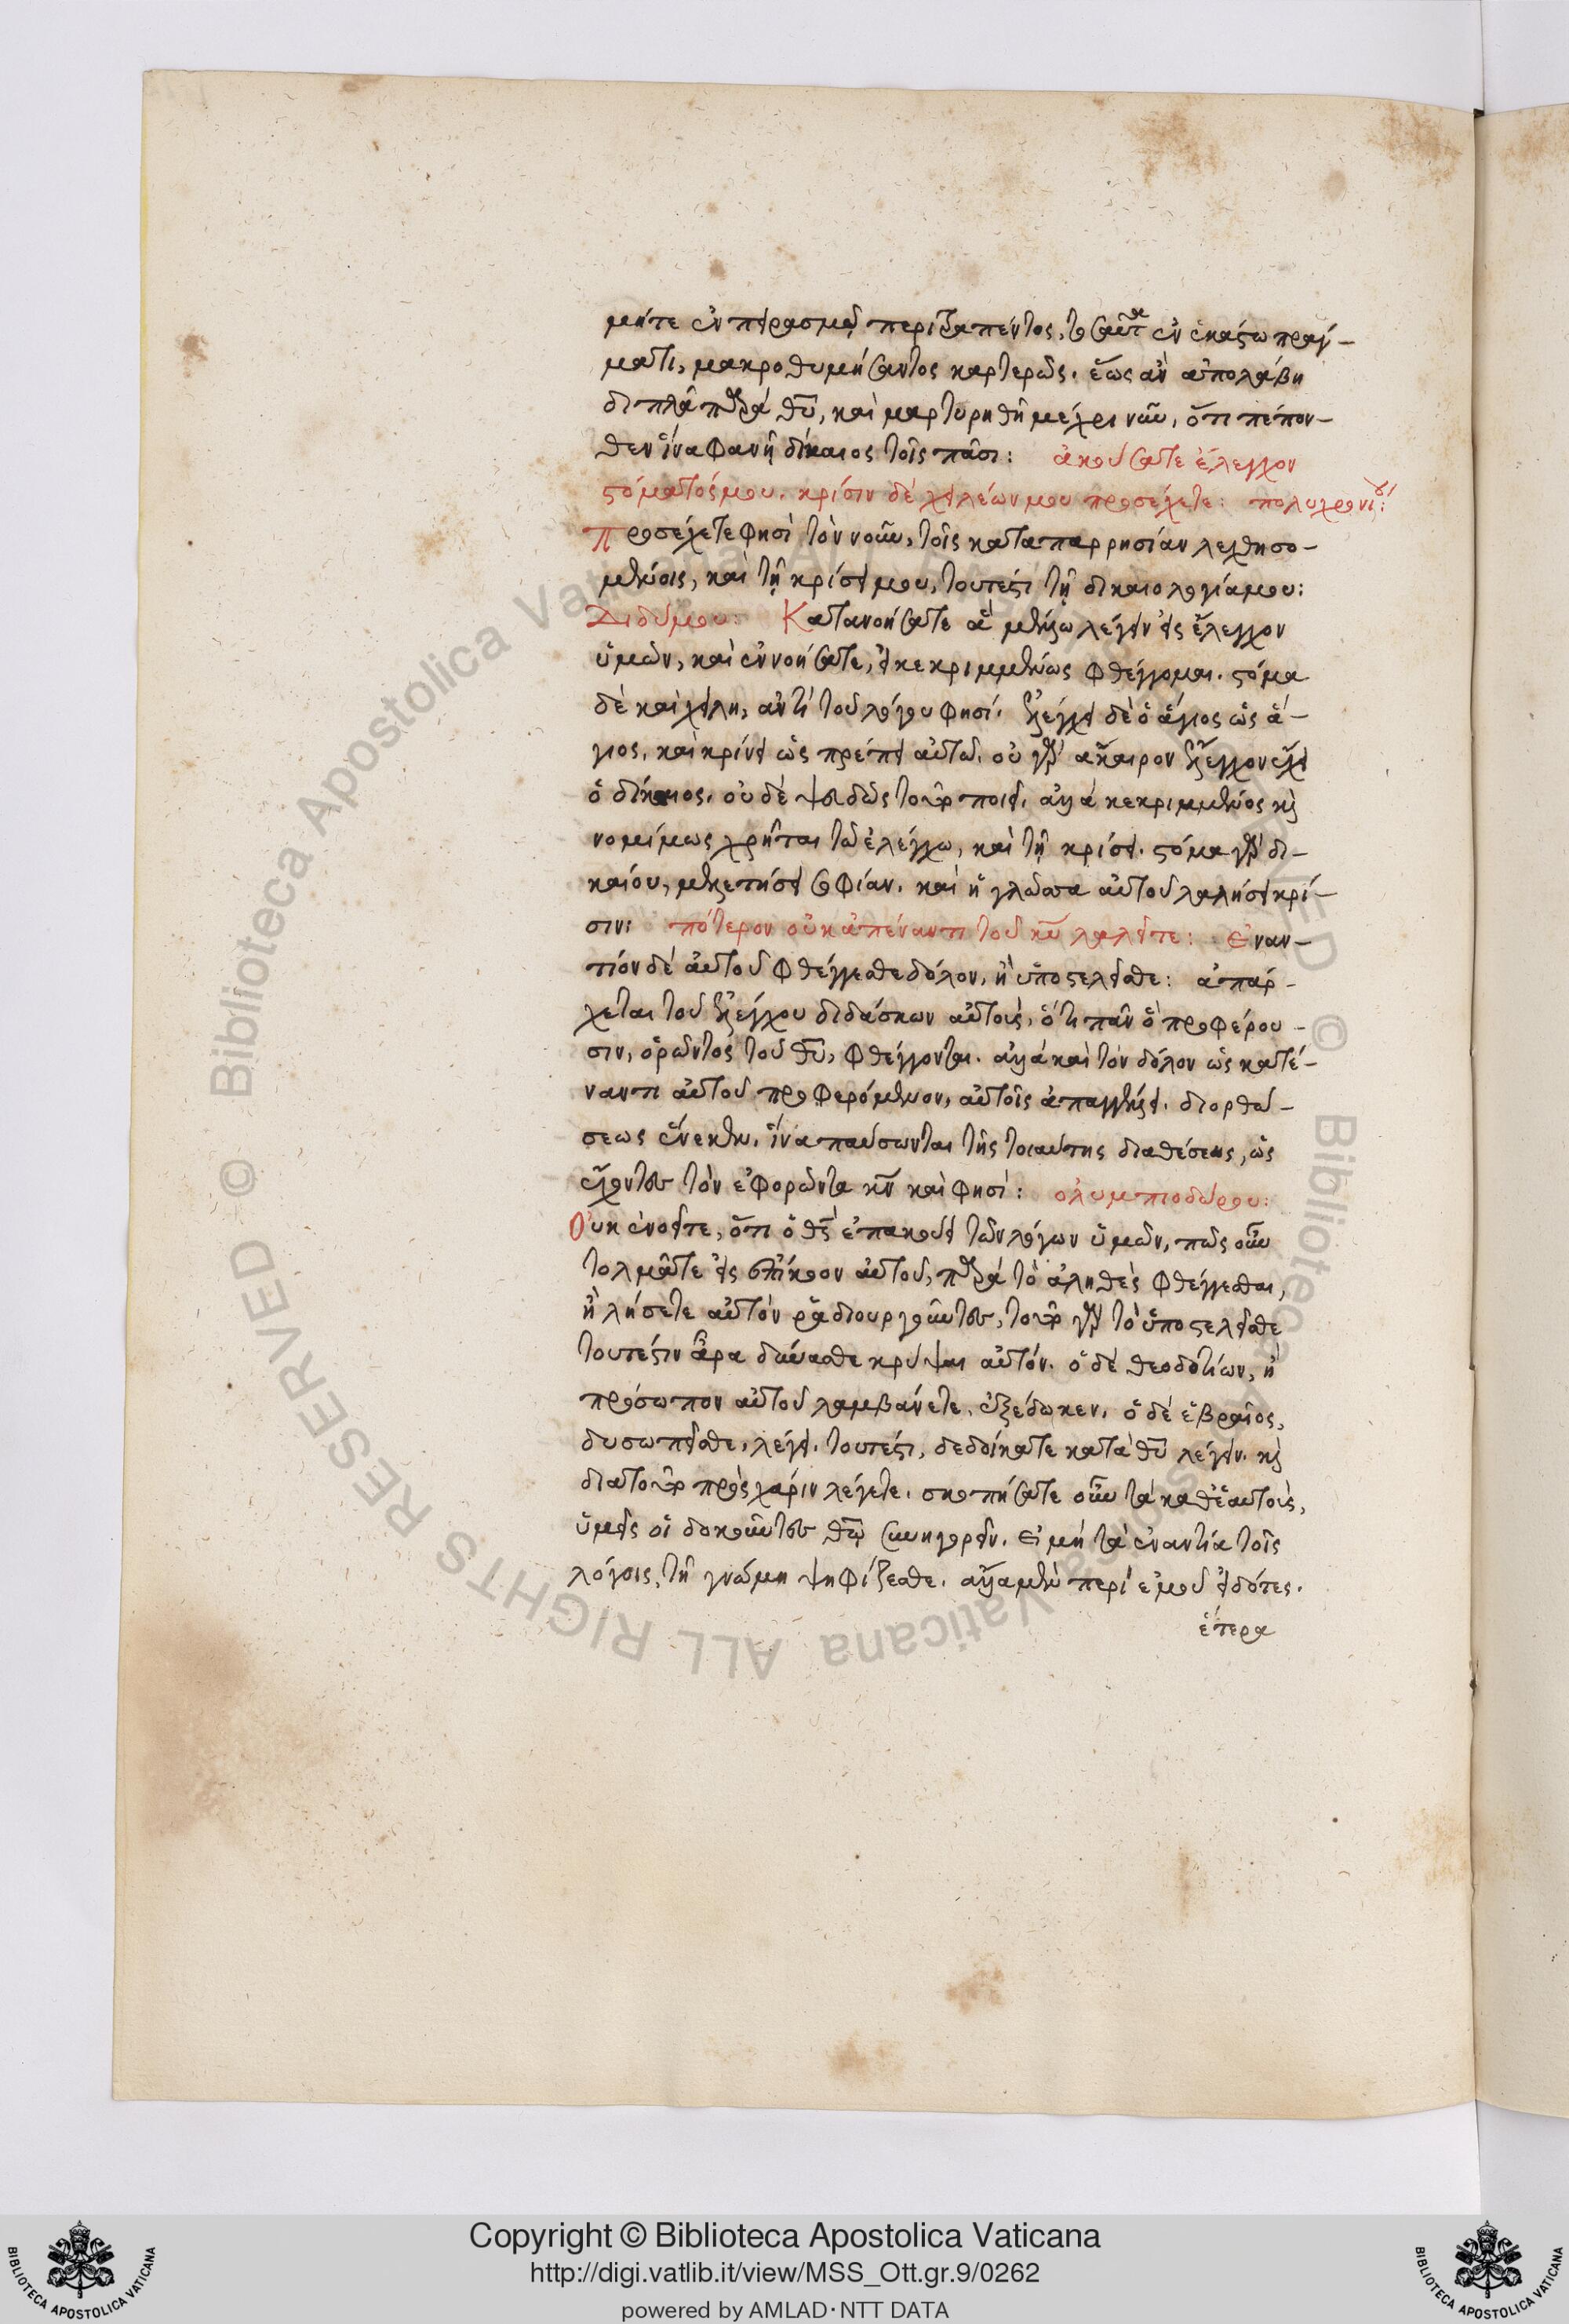 μήτε ἐν πειρασμῷ περιτραπέντος, τοσαῦτα ἐν ἑκάστω πράγ-
ματι, μακροθυμήσαντος καρτερῶς. ἕως ἂν ἀπολάβη
διπλᾶ παρὰ θυ, καὶ μαρτυρηθῆ μέχρι νῦν, ὅτι πέπον-
θεν ἵνα φανῆ δίκαιος τοῖς πᾶσι: ἀκούσατε ἔλεγχον
στόματός μου. κρίσιν δὲ χειλέων μου προσέχετε: πολυχρονίου:
Προσέχετε φησὶ τὸν νοῦν, τοῖς κατὰ παρρησίαν λεχθησο-
μένοις, καὶ τῇ κρίσει μου, τουτέστι τῇ δικαιολογία μου:
Διδύμου: Κατανοήσατε ἃ μέλλω λέγειν εἰς ἔλεγχον
ὑμῶν, καὶ ἐννοήσατε, εἰ κεκριμμένως φθέγγομαι. στόμα
δὲ καὶ χείλη, ἀντὶ τοῦ λόγου φησί. ἐλέγχει δὲ ὁ ἅγιος ὡς ἅ-
γιος, καὶ κρίνει ὡς πρέπει αὐτῶ. οὐ γὰρ ἄκαιρον ἔλεγχον ἔχει
ὁ δίκαιος. οὐδὲ ψευδῶς τοῦτο ποιεῖ. ἀλλὰ κεκριμμένος κὶ
νομίμως χρῆται τῶ ἐλέγχω, καὶ τῇ κρίσει. στόμα γὰρ δι-
καίου, μελετήσει σοφίαν. καὶ ἡ γλῶσσα αὐτοῦ λαλήσει κρί-
σιν: πότερον οὐκ ἀπέναντι τοῦ κυ λαλεῖτε: ἐναν-
τίον δὲ αὐτοῦ φθέγγεσθε δόλον, ἢ ὑποστελεῖσθε: ἀπάρ-
χεται τοῦ ἐλέγχου διδάσκων αὐτοὺς, ὅτι πᾶν ὃ προφέρου-
σιν, ὁρῶντος τοῦ θυ, φθέγγονται. ἀλλὰ καὶ τὸν δόλον ὡς κατέ-
ναντι αὐτοῦ προφερόμενον, αὐτοῖς ἀπαγγέλλει. διορθώ-
σεως ἕνεκεν. ἵνα παύσωνται τῆς τοιαύτης διαθέσεως, ὡς
ἔχοντες τὸν ἐφορῶντα κν καὶ φησί: ολυμπιοδώρου:
Οὐκ ἐνοεῖτε, ὅτι ὁ θς ἐπακούει τῶν λόγων ὑμῶν, πῶς οὖν
τολμᾶτε εἰς ἐπήκοον αὐτοῦ, παρὰ τὸ ἀληθὲς φθέγγεσθαι,
ἢ λήσετε αὐτὸν ῥαδιουργοῦντες, τοῦτο γὰρ τὸ ὑποστελεῖσθε
τουτέστιν ἆρα δύνασθε κρύψαι αὐτόν. ὁ δὲ θεοδοτίων, ἢ
πρόσωπον αὐτοῦ λαμβάνετε, ἐξέδωκεν. ὁ δὲ ἑβραῖος,
δυσωπεῖσθε, λέγει. τουτέστι, δεδοίκατε κατὰ θυ λέγειν. κὶ
διατοῦτο πρὸς χάριν λέγετε. σκοπήσατε οὖν τὰ καθ' ἑαυτοὺς,
ὑμεῖς οἱ δοκοῦντες θω συνηγορεῖν. εἰ μὴ τὰ ἐναντία τοῖς
λόγοις, τῇ γνώμη ψηφίζεσθε. ἀλλὰ μὲν περὶ ἐμοῦ εἰδότες.
ἕτερα
Copyright © Biblioteca Apostolica Vaticana
http://digi.vatlib.it/view/MSS_Ott.gr.9/0262
powered by AMLAD·NTT DATA
BIBLIOTECA APOSTOLICA VATICANA
BIBLIOTECA APOSTOLICA VATICANA